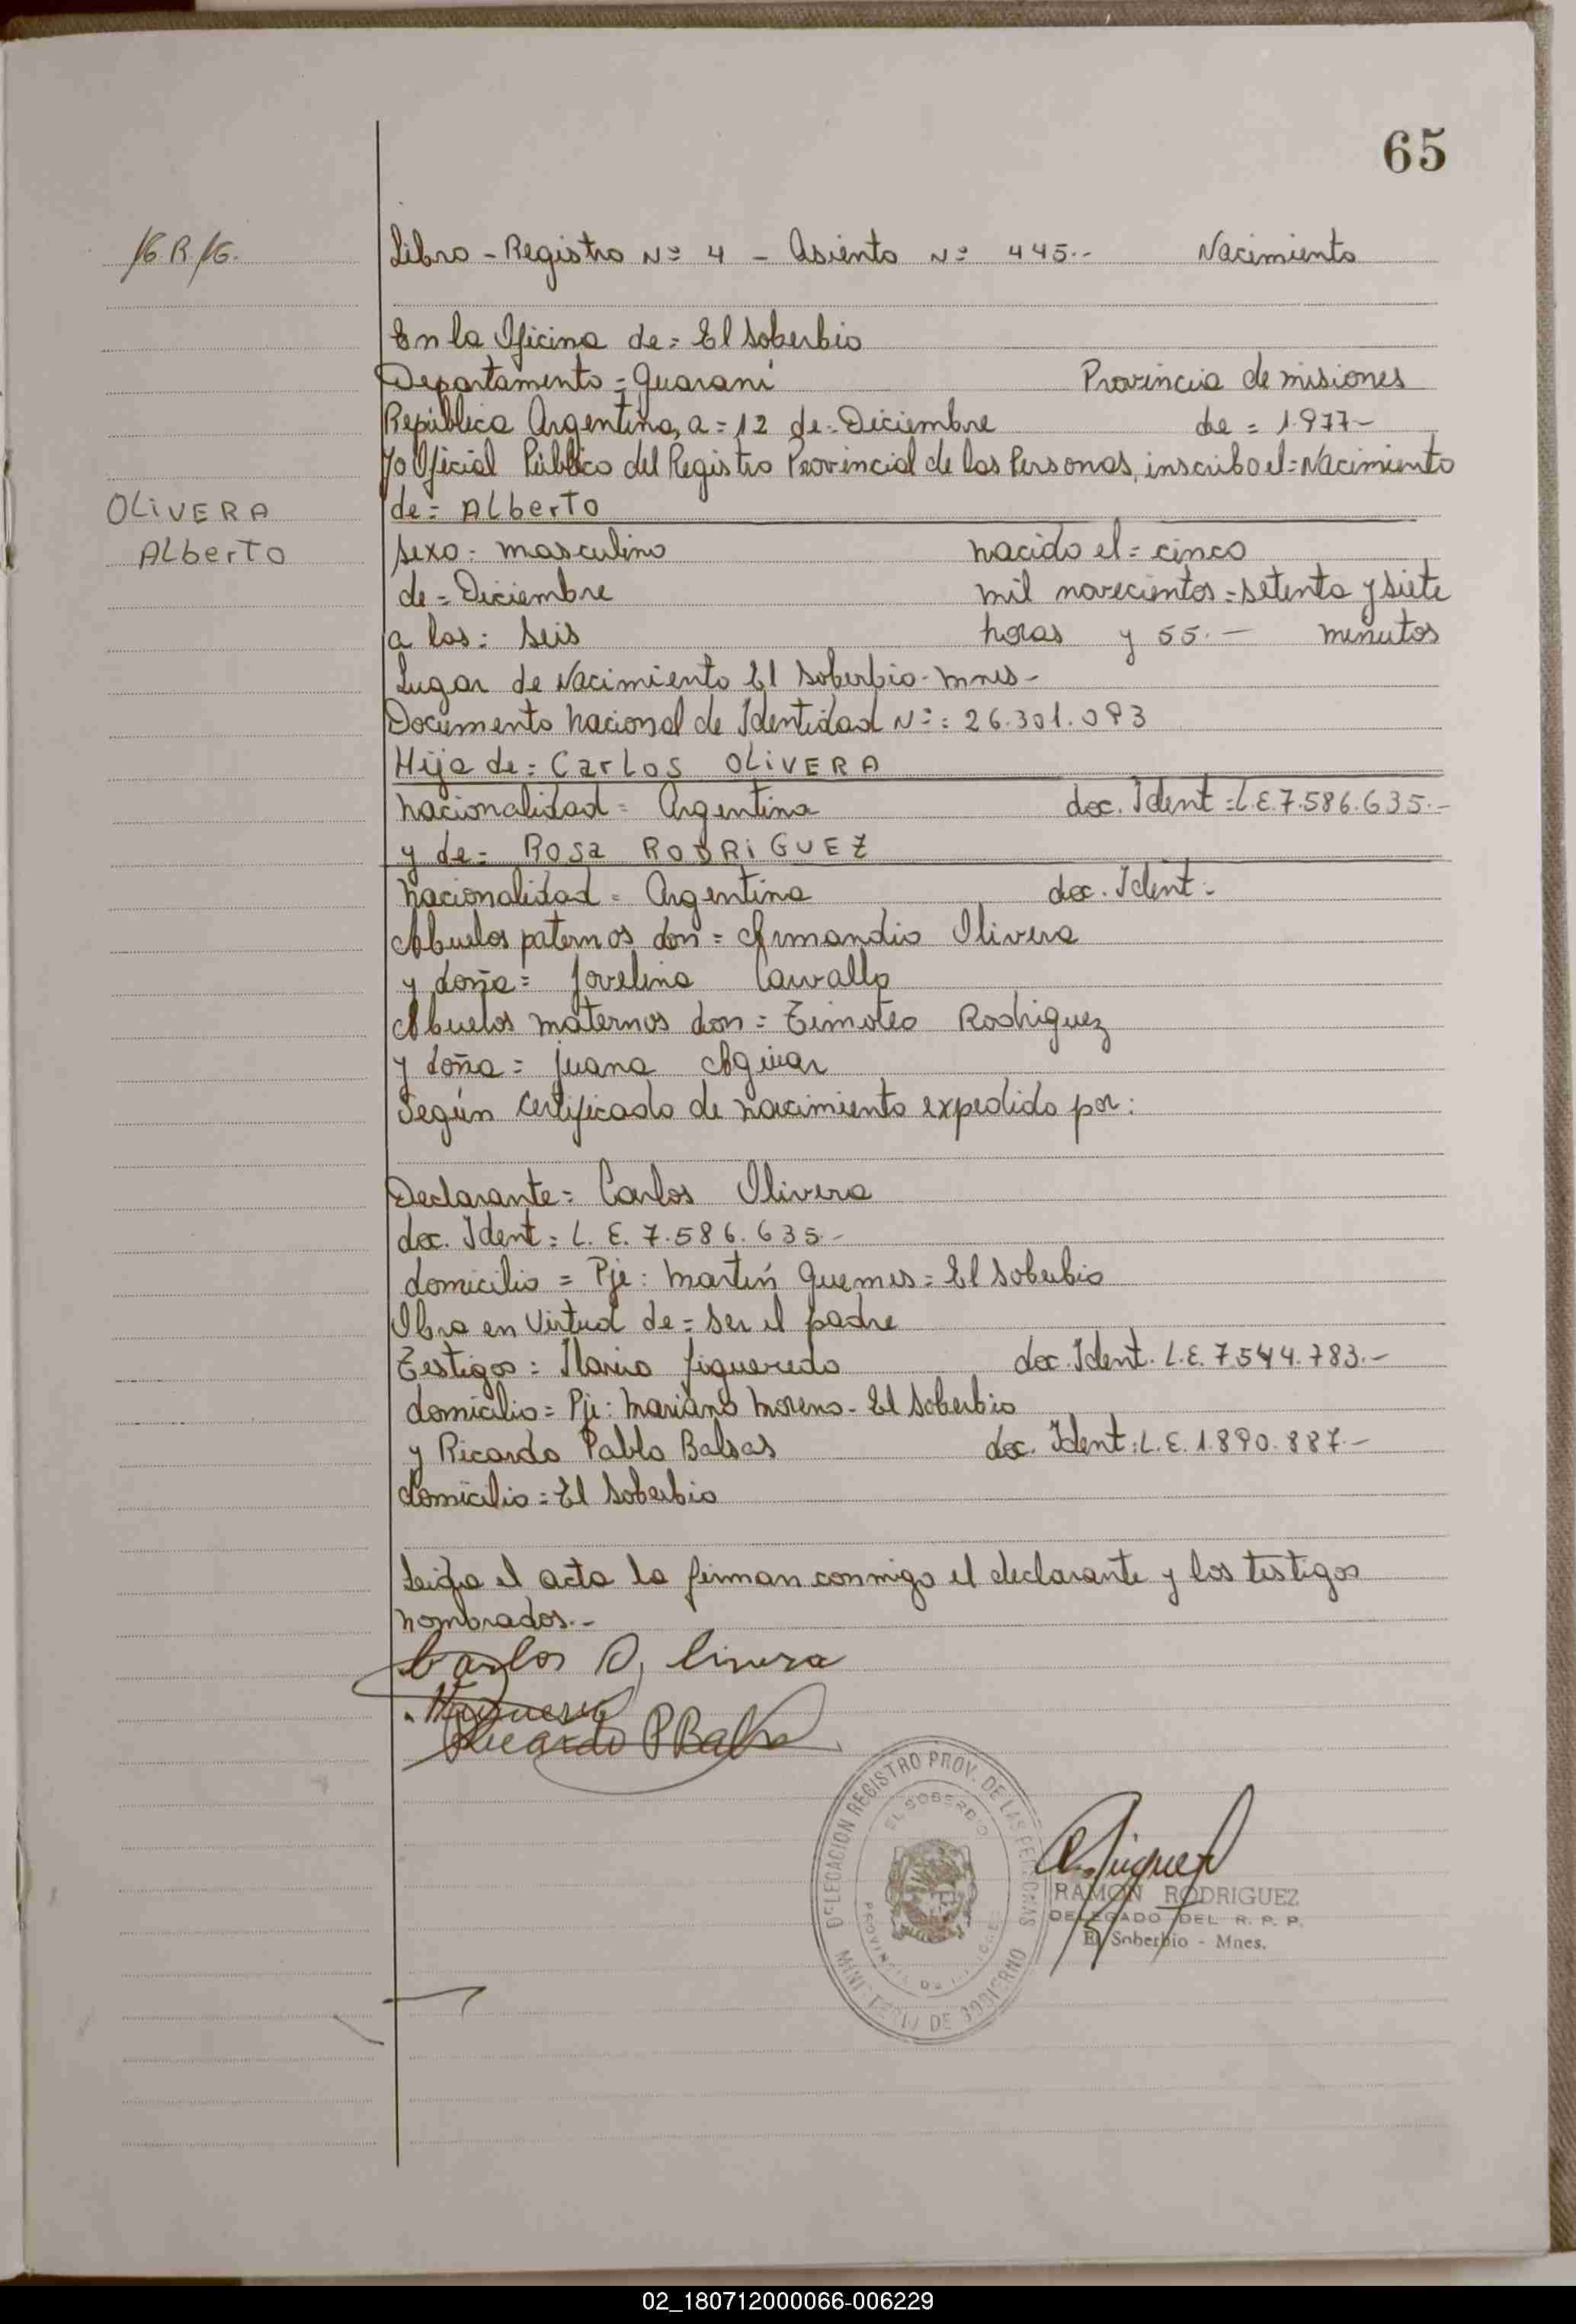 65
Libro - Registro Nº 4 - Asiento Nº 445.- Nacimiento
En la Oficina de = El Soberbio
Departamento = Guaraní Provincia de misiones
República Argentina, a = 12 de = Diciembre de = 1.977-
Yo Oficial Público del Registro Provincial de las Personas, inscribo el = Nacimiento
OLIVERA
Alberto
de = Alberto
sexo = masculino nacido el = cinco
de = Diciembre mil novecientos = setenta y siete
a las = seis horas y 55.- minutos
Lugar de Nacimiento El Soberbio - Mnes -
Documento Nacional de Identidad Nº = 26.301.093
Hijo de = Carlos OLIVERA
nacionalidad = Argentina doc. Ident = L.E. 7.586.635.-
y de = Rosa RODRIGUEZ
nacionalidad = Argentina doc. Ident =
Abuelos paternos don = Armandio Olivera
y doña = Jovelina Carvallo
Abuelos maternos don = Timoteo Rodriguez
y doña = Juana Aguiar
Según certificado de nacimiento expedido por :
Declarante = Carlos Olivera
doc. Ident = L. E. 7.586.635.-
domicilio = Pje : Martín Guemes = El Soberbio
Obra en virtud de = ser el padre
Testigos : Ilario Figueredo doc. Ident. L.E. 7.544.783.-
domicilio = Pje : Mariano Moreno - El Soberbio
y Ricardo Pablo Balsas doc. Ident : L.E. 1.890.887.-
domicilio = El Soberbio
Leida el acta la firman conmigo el declarante y los testigos
nombrados.-
Carlos Olivera
Ricardo P Balsa
DELEGACION REGISTRO PROV. DE LAS PERSONAS
EL SOBERBIO
PROVINCIA DE MISIONES
MINISTERIO DE GOBIERNO
RAMON RODRIGUEZ
DELEGADO DEL R. P. P.
El Soberbio - Mnes.
02_180712000066-006229